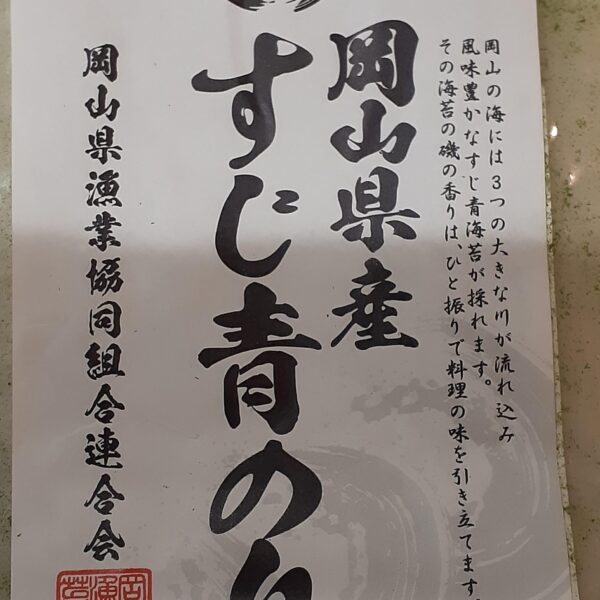 岡山の海には３つの大きな川が流れ込み
風味豊かなすじ青海苔が採れます。
その海苔の磯の香りは、ひと振りで料理の味を引き立てます。
岡山県産
すじ青のり
岡山県漁業協同組合連合会